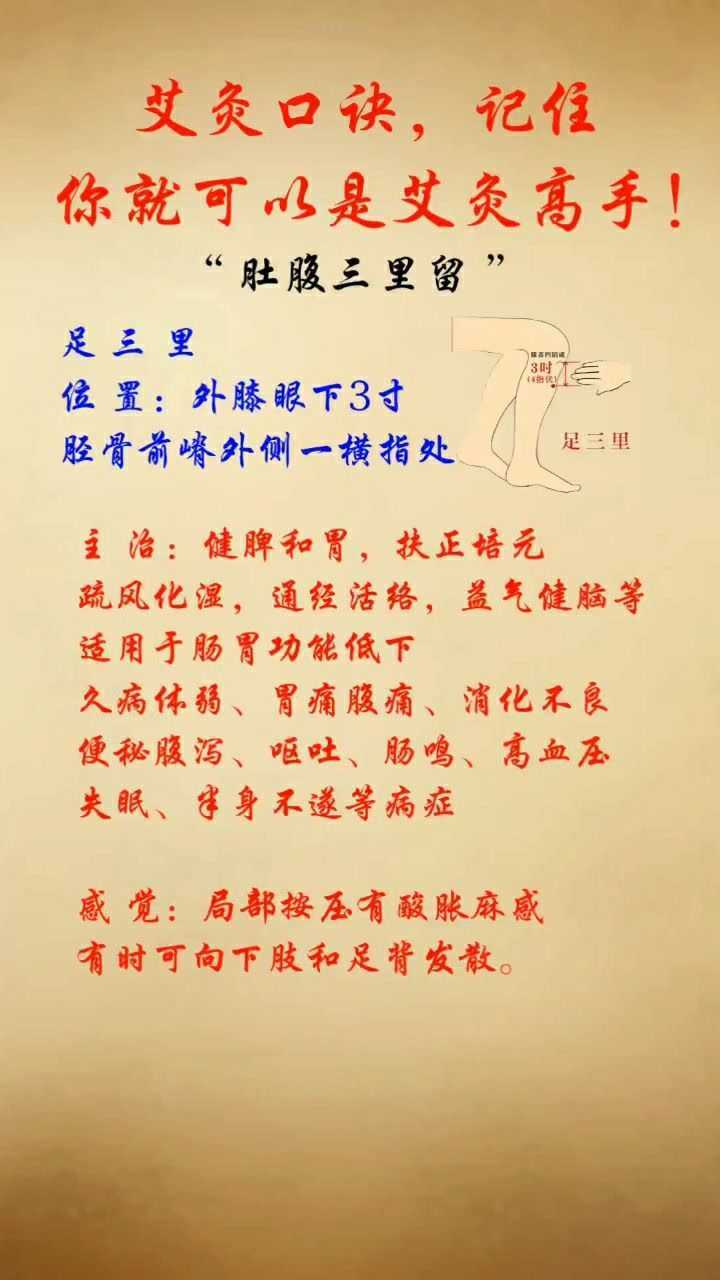 艾灸口诀，记住
你就可以是艾灸高手！
“肚腹三里留”
足三里
位置：外膝眼下3寸
胫骨前嵴外侧一横指处
3吋
(4指伏)
足三里
主治：健脾和胃，扶正培元
疏风化湿，通经活络，益气健脑等
适用于肠胃功能低下
久病体弱、胃痛腹痛、消化不良
便秘腹泻、呕吐、肠鸣、高血压
失眠、半身不遂等病症
感觉：局部按压有酸胀麻感
有时可向下肢和足背发散。